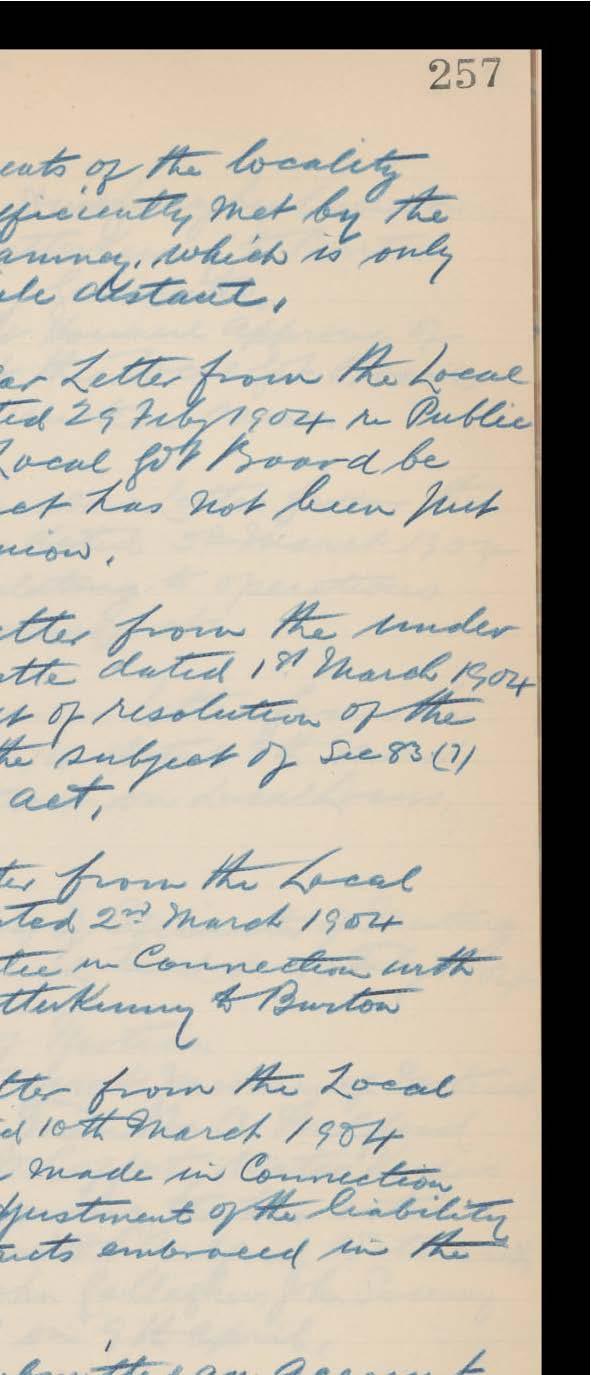 257
ents of the locality
fficiently met by the
which is only
ile distant.
ar Letter from the Local
ted 29 Feby 1904 re Public
Local got Board be
act has not been put
nion.
etter from the under
dated 1st March 1904
ct of resolution of the
the subject of Sec 83 (7)
act.
ter from the Local
ated 2nd March 1904
tee in Connection with
etterkenny to Burton
tter from the Local
ed 10th March 1904
made in Connection
djustment of the liability
embraced in the
an account